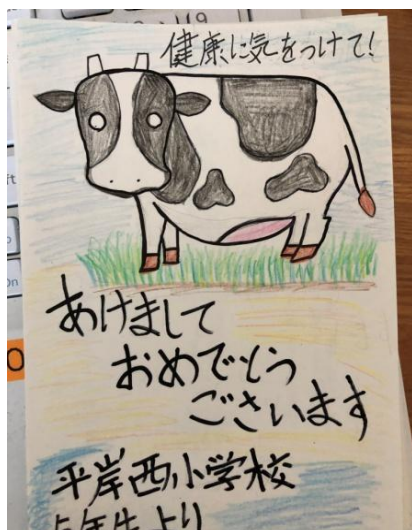 健康に気をつけて!
あけまして
おめでとう
ございます
平岸西小学校
5年生より